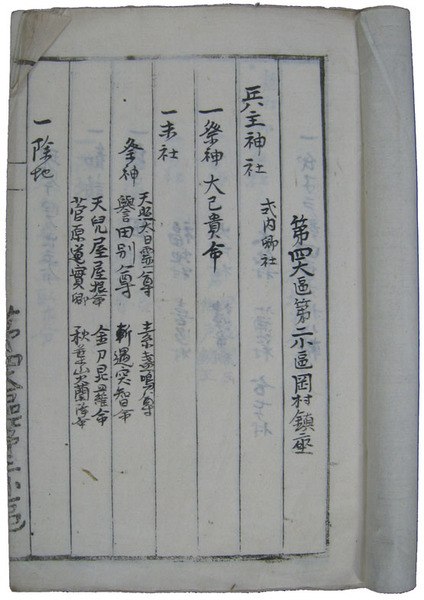 第四大區第二小區岡村鎮座
兵主神社
式内郷社
一祭神 大己貴命
一末社
祭神
天照大日孁尊 素盞嗚尊
譽田別尊 軻遇突智命
天兒屋屋根命 金刀昆羅命
菅原道實卿 秋葉山
一除地